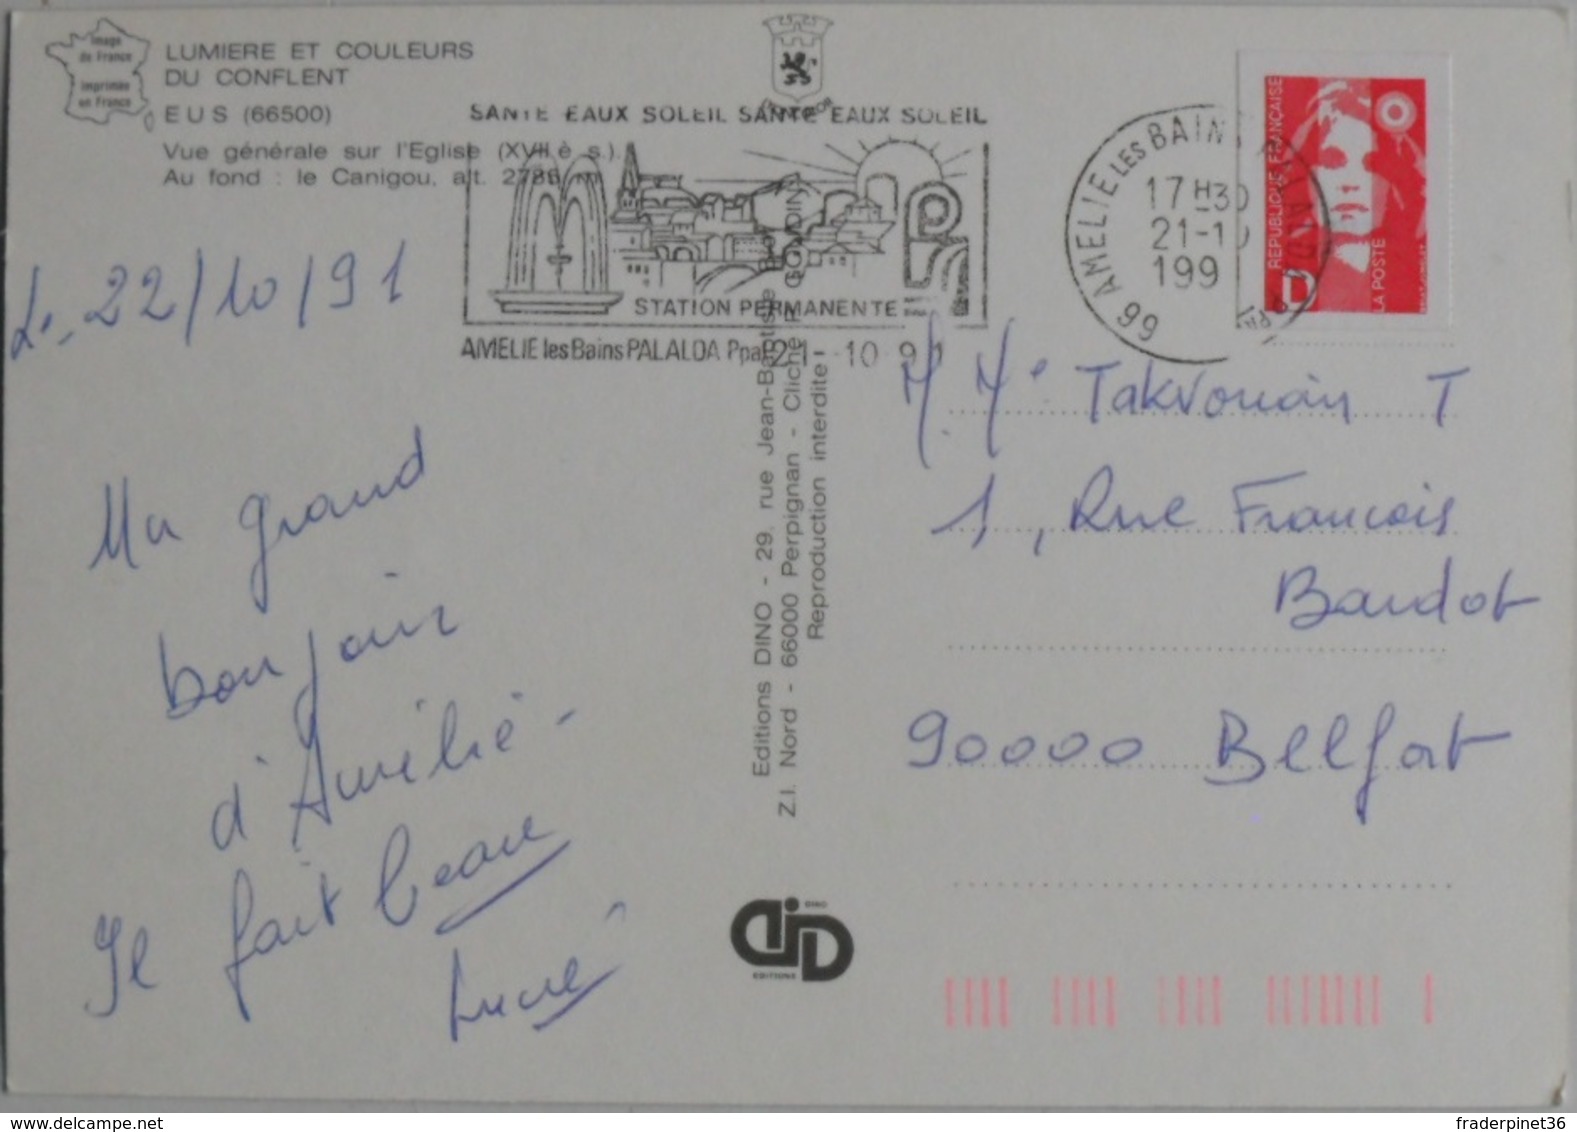 Image
de France
imprimée
en France
LUMIERE ET COULEURS
DU CONFLENT
EUS (66500)
Vue générale sur l'Eglise (XVII è s.).
Au fond : le Canigou, alt. 2786 m
SANTE EAUX SOLEIL SANTE EAUX SOLEIL
STATION PERMANENTE
AMELIE les Bains PALALDA Ppal 21-10 91
66 AMELIE LES BAINS
17 H30
21-10
199
REPUBLIQUE FRANÇAISE
D
LA POSTE
Le 22/10/91
Un grand
bonjour
d'Amélie -
Il fait beau
M. Me Takvorian T
1, Rue Francois
Baudot
90000 Belfort
Editions DINO - 29, rue Jean-Baptiste
Z.I. Nord - 66000 Perpignan - Cliché
Reproduction interdite
DINO
EDITIONS
http://www.delcampe.net
fraderpinet36